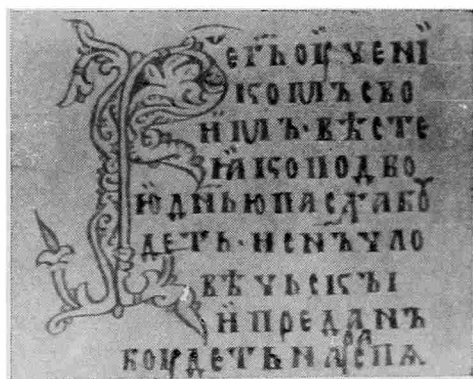 Рⷱ҇ЕГ҃ЬОУЧЕНІ
КОМЪСВО
ИМЪ·ВѢСТЕ
ꙖКОПОДВО
ЮДН҃ЬЮПАСХАБꙊ
ДЕТЬ·ИСН҃ЪЧЛО
ВѢЧЬСКЪІ
ИПРЕДАНЪ
БОУДЕТЬНА